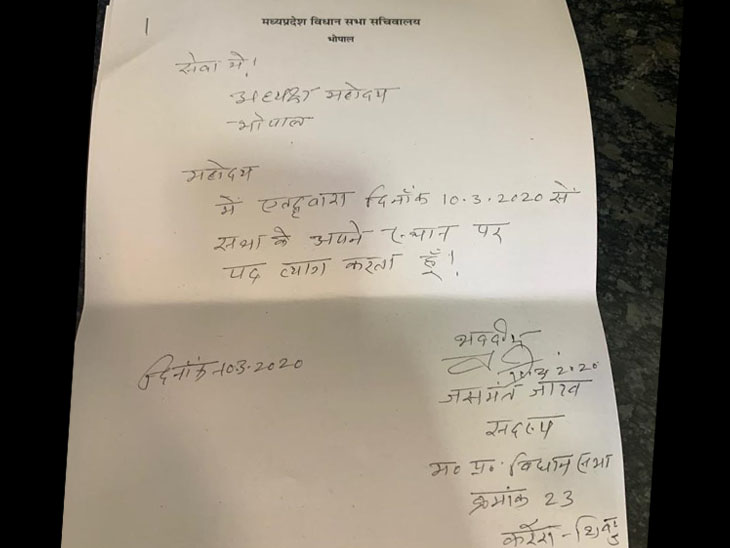 1
मध्यप्रदेश विधान सभा सचिवालय
भोपाल
सेवा में।
अध्यक्ष महोदय
भोपाल
महोदय
में एतद्द्वारा दिनाँक 10.3.2020 सें
सभा के अपने स्थान पर
पद त्याग करता हूँ।
भवदीय
दिनांक 10.3.2020
जसमंत जाटव
सदस्य
म० प्र० विधान सभा
क्रमांक 23
करैरा -